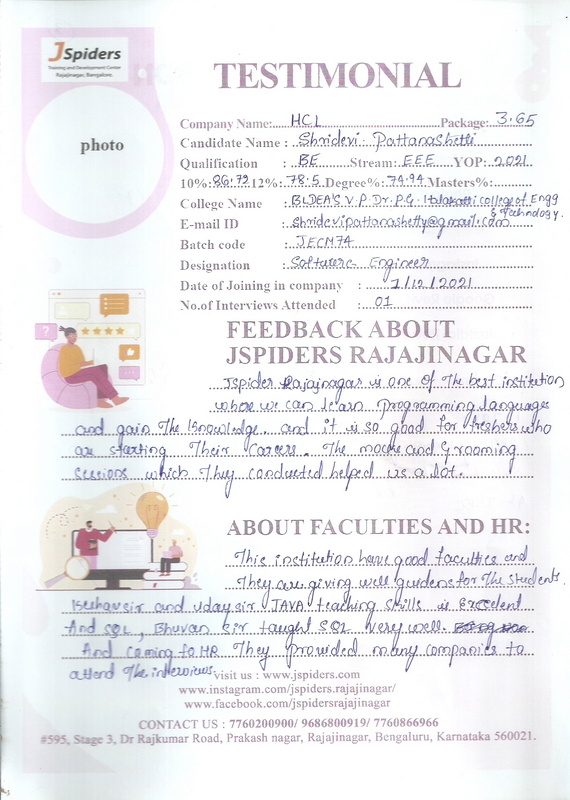 JSpiders
Training and Development Center
Rajajinagar, Bangalore.
TESTIMONIAL
photo
Company Name: HCL Package: 3.65
Candidate Name : Shridevi Pattanashetti
Qualification : BE Stream: EEE YOP: 2021
10%: 86.72 12%: 78.5 Degree%: 74.94 Masters%:
College Name : BLDEA'S V.P. Dr. P.G. Halakatti college of Engg
& Technology.
E-mail ID : shridevipattanashetty@gmail.com
Batch code : JECM74
Designation : Software Engineer
Date of Joining in company : 1/12/2021
No.of Interviews Attended : 01
FEEDBACK ABOUT
JSPIDERS RAJAJINAGAR
Jspider Rajajinagar is one of the best institution
where we can learn programming languages
and gain The knowledge. and it is so good for freshers who
are starting Their Career. The mocks and Grooming
sessions which They conducted helped us a lot.
ABOUT FACULTIES AND HR:
This institution have good faculties and
They are giving well guidens for The students.
sir and Uday sir JAVA teaching skills is Excellent
And SQL, Bhuvan sir taught SQL very well.
And Coming to HR They provided many companies to
attend The interviews.
visit us : www.jspiders.com
www.instagram.com/jspiders.rajajinagar/
www.facebook.com/jspidersrajajinagar
CONTACT US : 7760200900/ 9686800919/ 7760866966
#595, Stage 3, Dr Rajkumar Road, Prakash nagar, Rajajinagar, Bengaluru, Karnataka 560021.